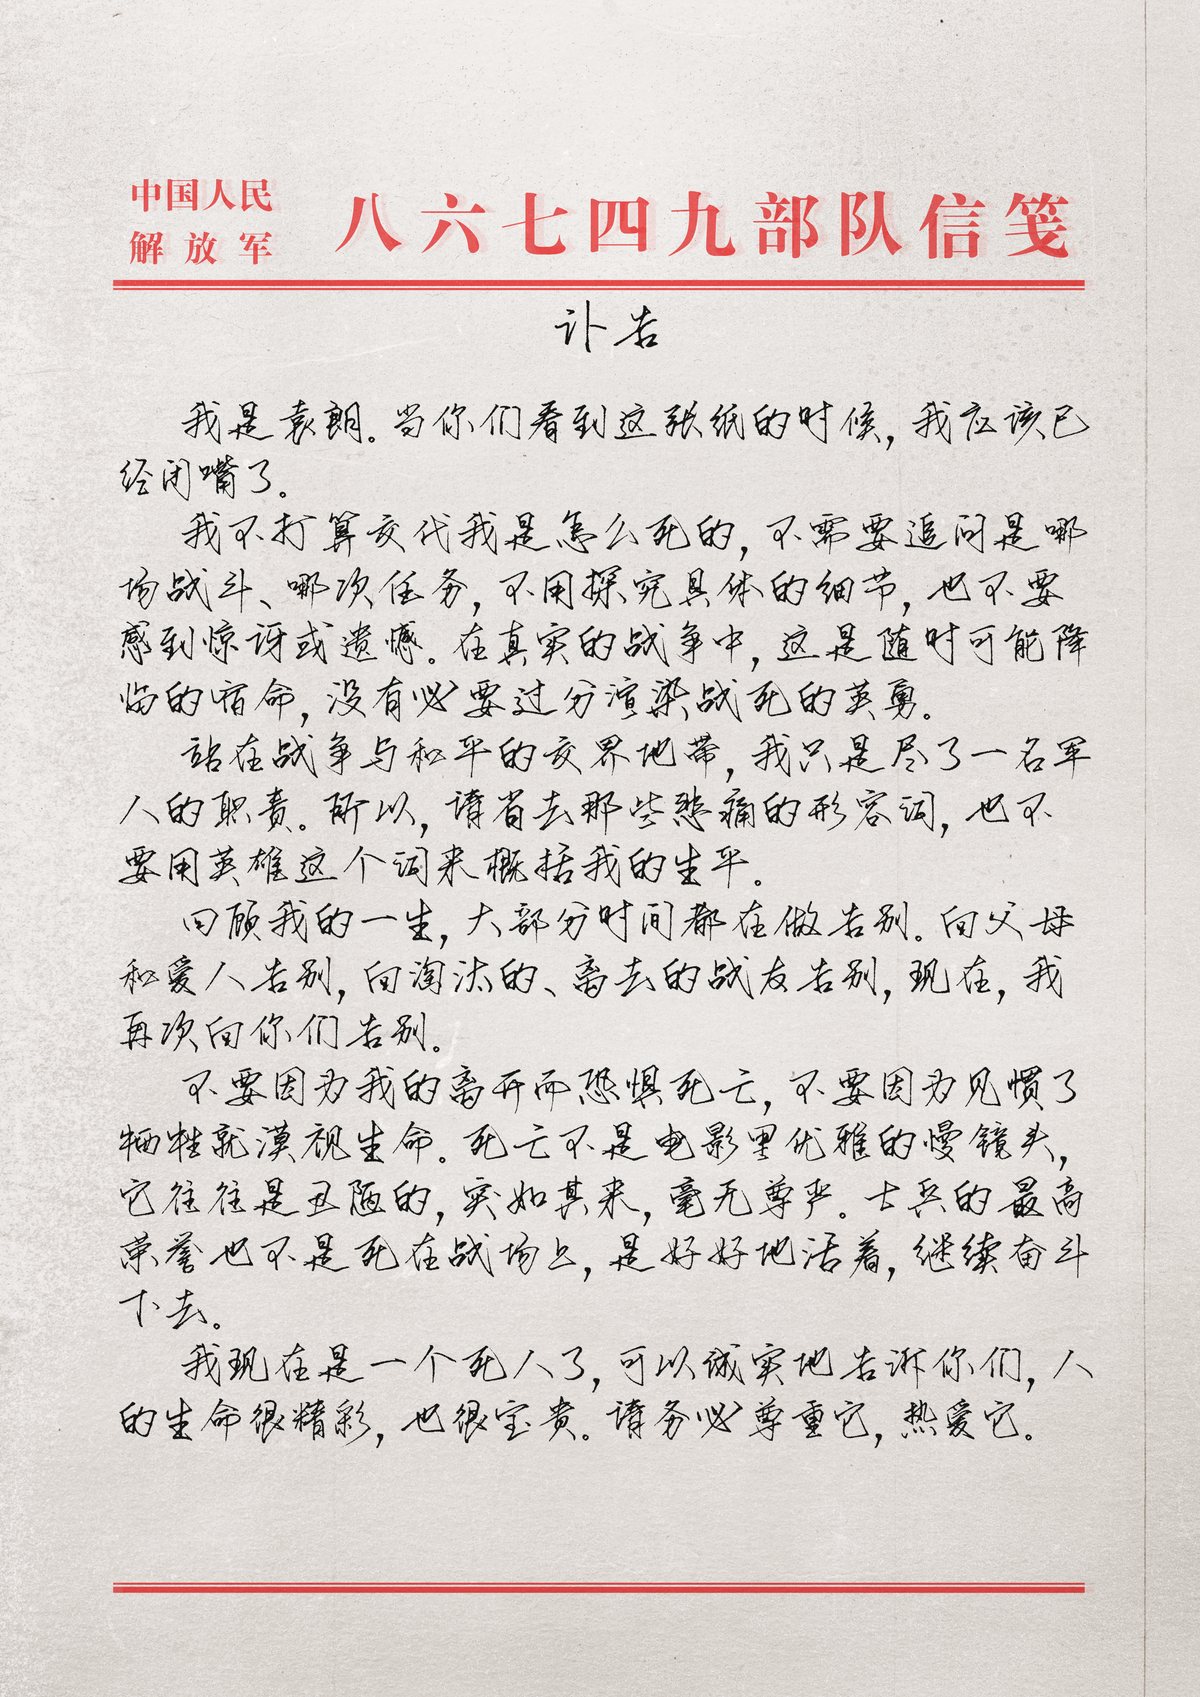 中国人民
解放军
八六七四九部队信笺
讣告
我是袁朗。当你们看到这张纸的时候，我应该已
经闭嘴了。
我不打算交代我是怎么死的，不需要追问是哪
场战斗、哪次任务，不用探究具体的细节，也不要
感到惊讶或遗憾。在真实的战争中，这是随时可能降
临的宿命，没有必要过分渲染战死的英勇。
站在战争与和平的交界地带，我只是尽了一名军
人的职责。所以，请省去那些悲痛的形容词，也不
要用英雄这个词来概括我的生平。
回顾我的一生，大部分时间都在做告别。向父母
和爱人告别，向淘汰的、离去的战友告别，现在，我
再次向你们告别。
不要因为我的离开而恐惧死亡，不要因为见惯了
牺牲就漠视生命。死亡不是电影里优雅的慢镜头，
它往往是丑陋的，突如其来，毫无尊严。士兵的最高
荣誉也不是死在战场上，是好好地活着，继续奋斗
下去。
我现在是一个死人了，可以诚实地告诉你们，人
的生命很精彩，也很宝贵。请务必尊重它，热爱它。